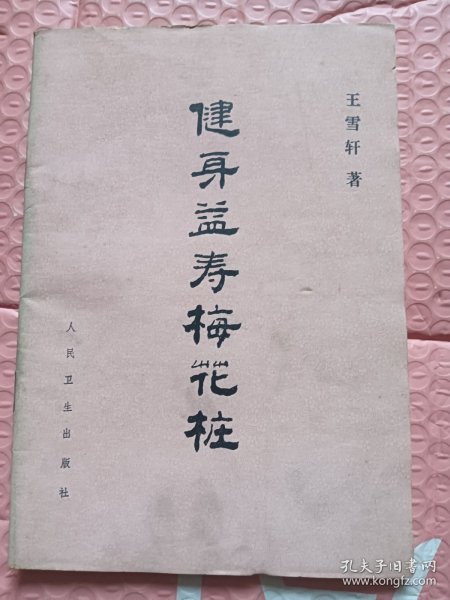 王雪轩 著
健身益寿梅花桩
人民卫生出版社
孔夫子旧书网
www.kongfz.com